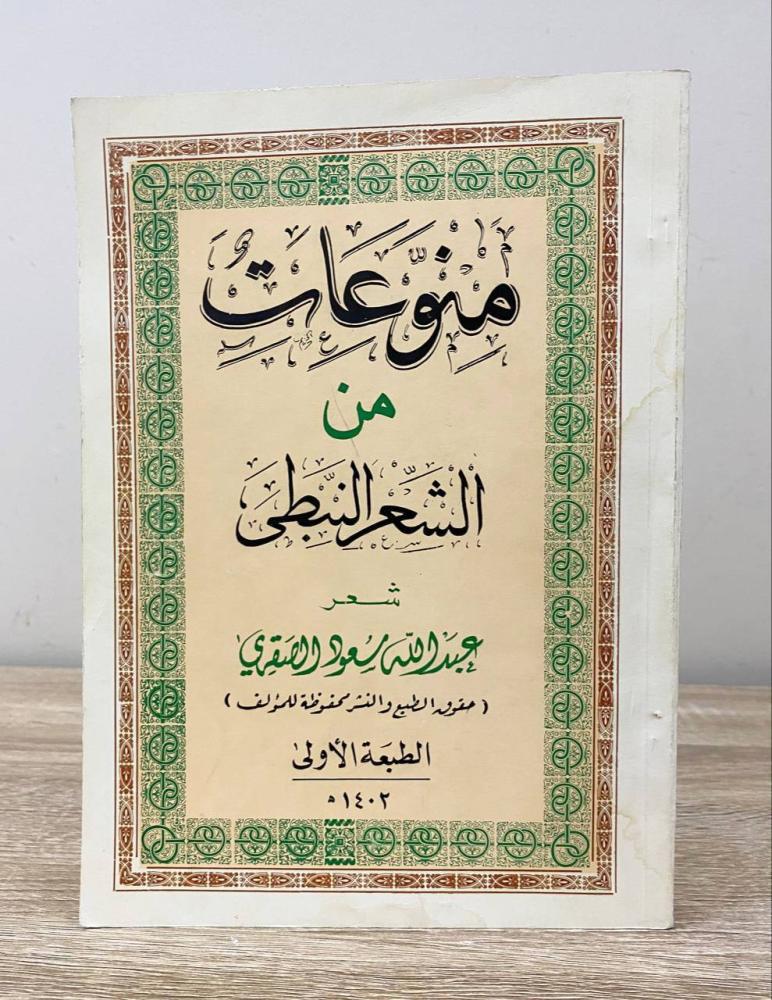 منوعات
من
الشعر النبطي
شعر
عبد الله سعود الصقري
( حقوق الطبع والنشر محفوظة للمؤلف )
الطبعة الأولى
١٤٠٢ ه